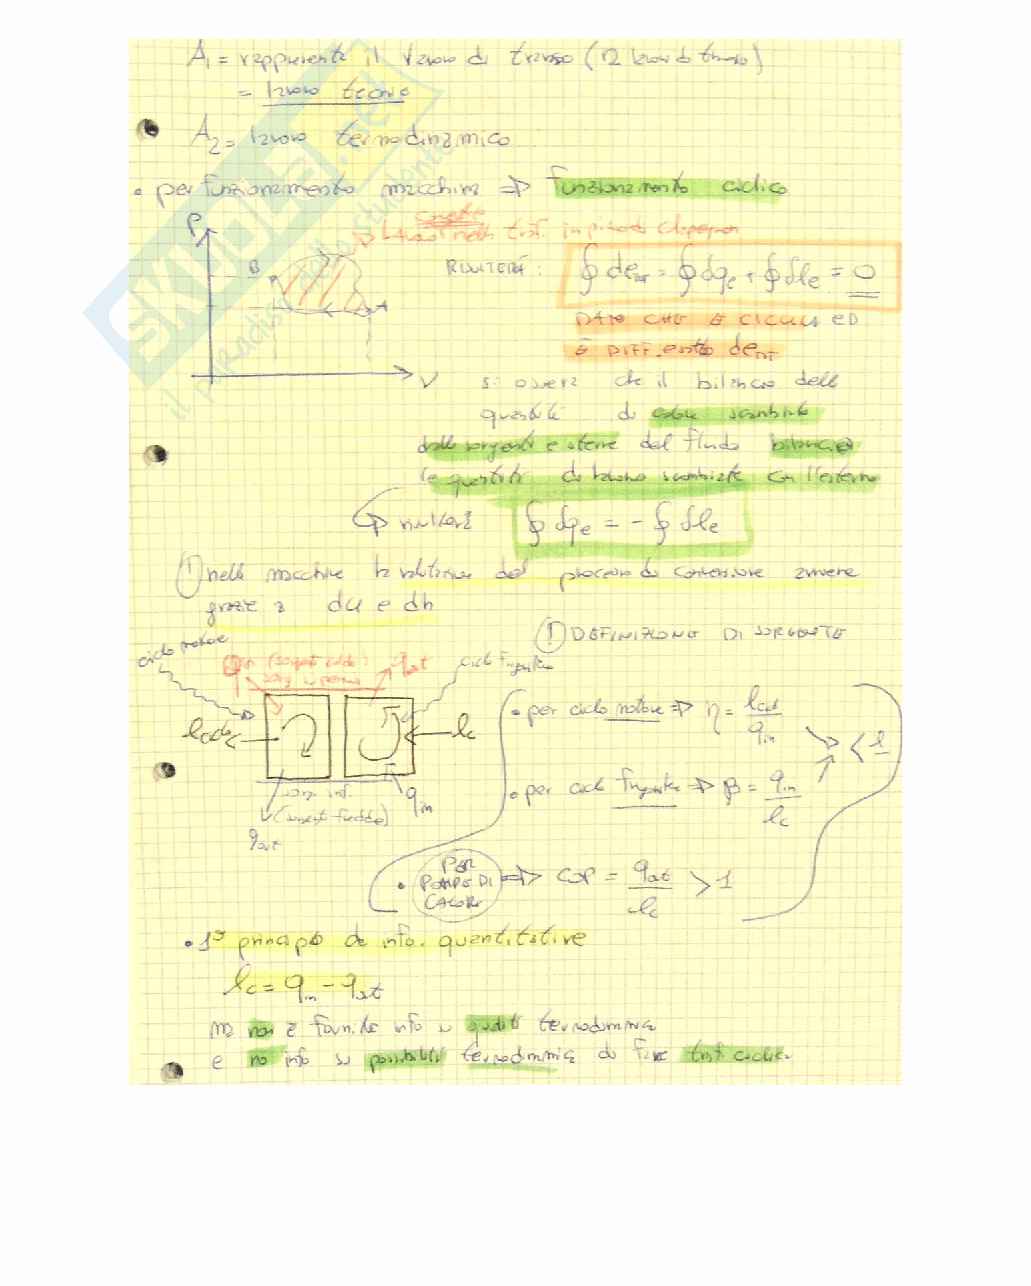 A₁ = rappresenta il lavoro di travaso (lavoro di
= lavoro tecnico
A₂ = lavoro termodinamico
• per funzionamento macchina ⇒ funzionamento ciclico
P
lavoro nella trasf. in piano di Clapeyron
B
A
V
RISULTERÀ :
∮ de_int = ∮ dq_e + ∮ dl_e = 0
DATO CHE È CICLICO ED
È DIFF. esatto de_int
si osserva che il bilancio delle
quantità di calore scambiate
dalle sorgenti esterne dal fluido bilancia
le quantità di lavoro scambiate con l'esterno
risulterà ∮ dq_e = - ∮ dl_e
! nelle macchine la valutazione del processo di conversione avviene
grazie a du e dh
! DEFINIZIONE DI SORGENTE
ciclo motore
q_in (sorgente calda)
q_out
ciclo frigorifero
l_c
q_in
sorg. inf.
(sorgente fredda)
q_out
• per ciclo motore ⇒ η = l_c / q_in
< 1
• per ciclo frigorifero ⇒ β = q_in / l_c
• PER POMPE DI CALORE ⇒ COP = q_out / l_c > 1
• 1° principio da info. quantitative
l_c = q_in - q_out
ma non fornisce info su qualità termodinamica
e no info su possibilità termodinamica di fare trasf. cicliche
SKUOLA.net
il paradiso dello studente